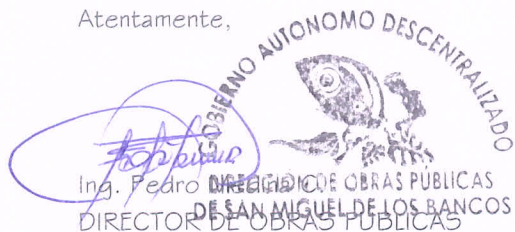 Atentamente,
GOBIERNO AUTONOMO DESCENTRALIZADO
Ing. Pedro
DIRECCION DE OBRAS PÚBLICAS
DE SAN MIGUEL DE LOS BANCOS
DIRECTOR DE OBRAS PÚBLICAS